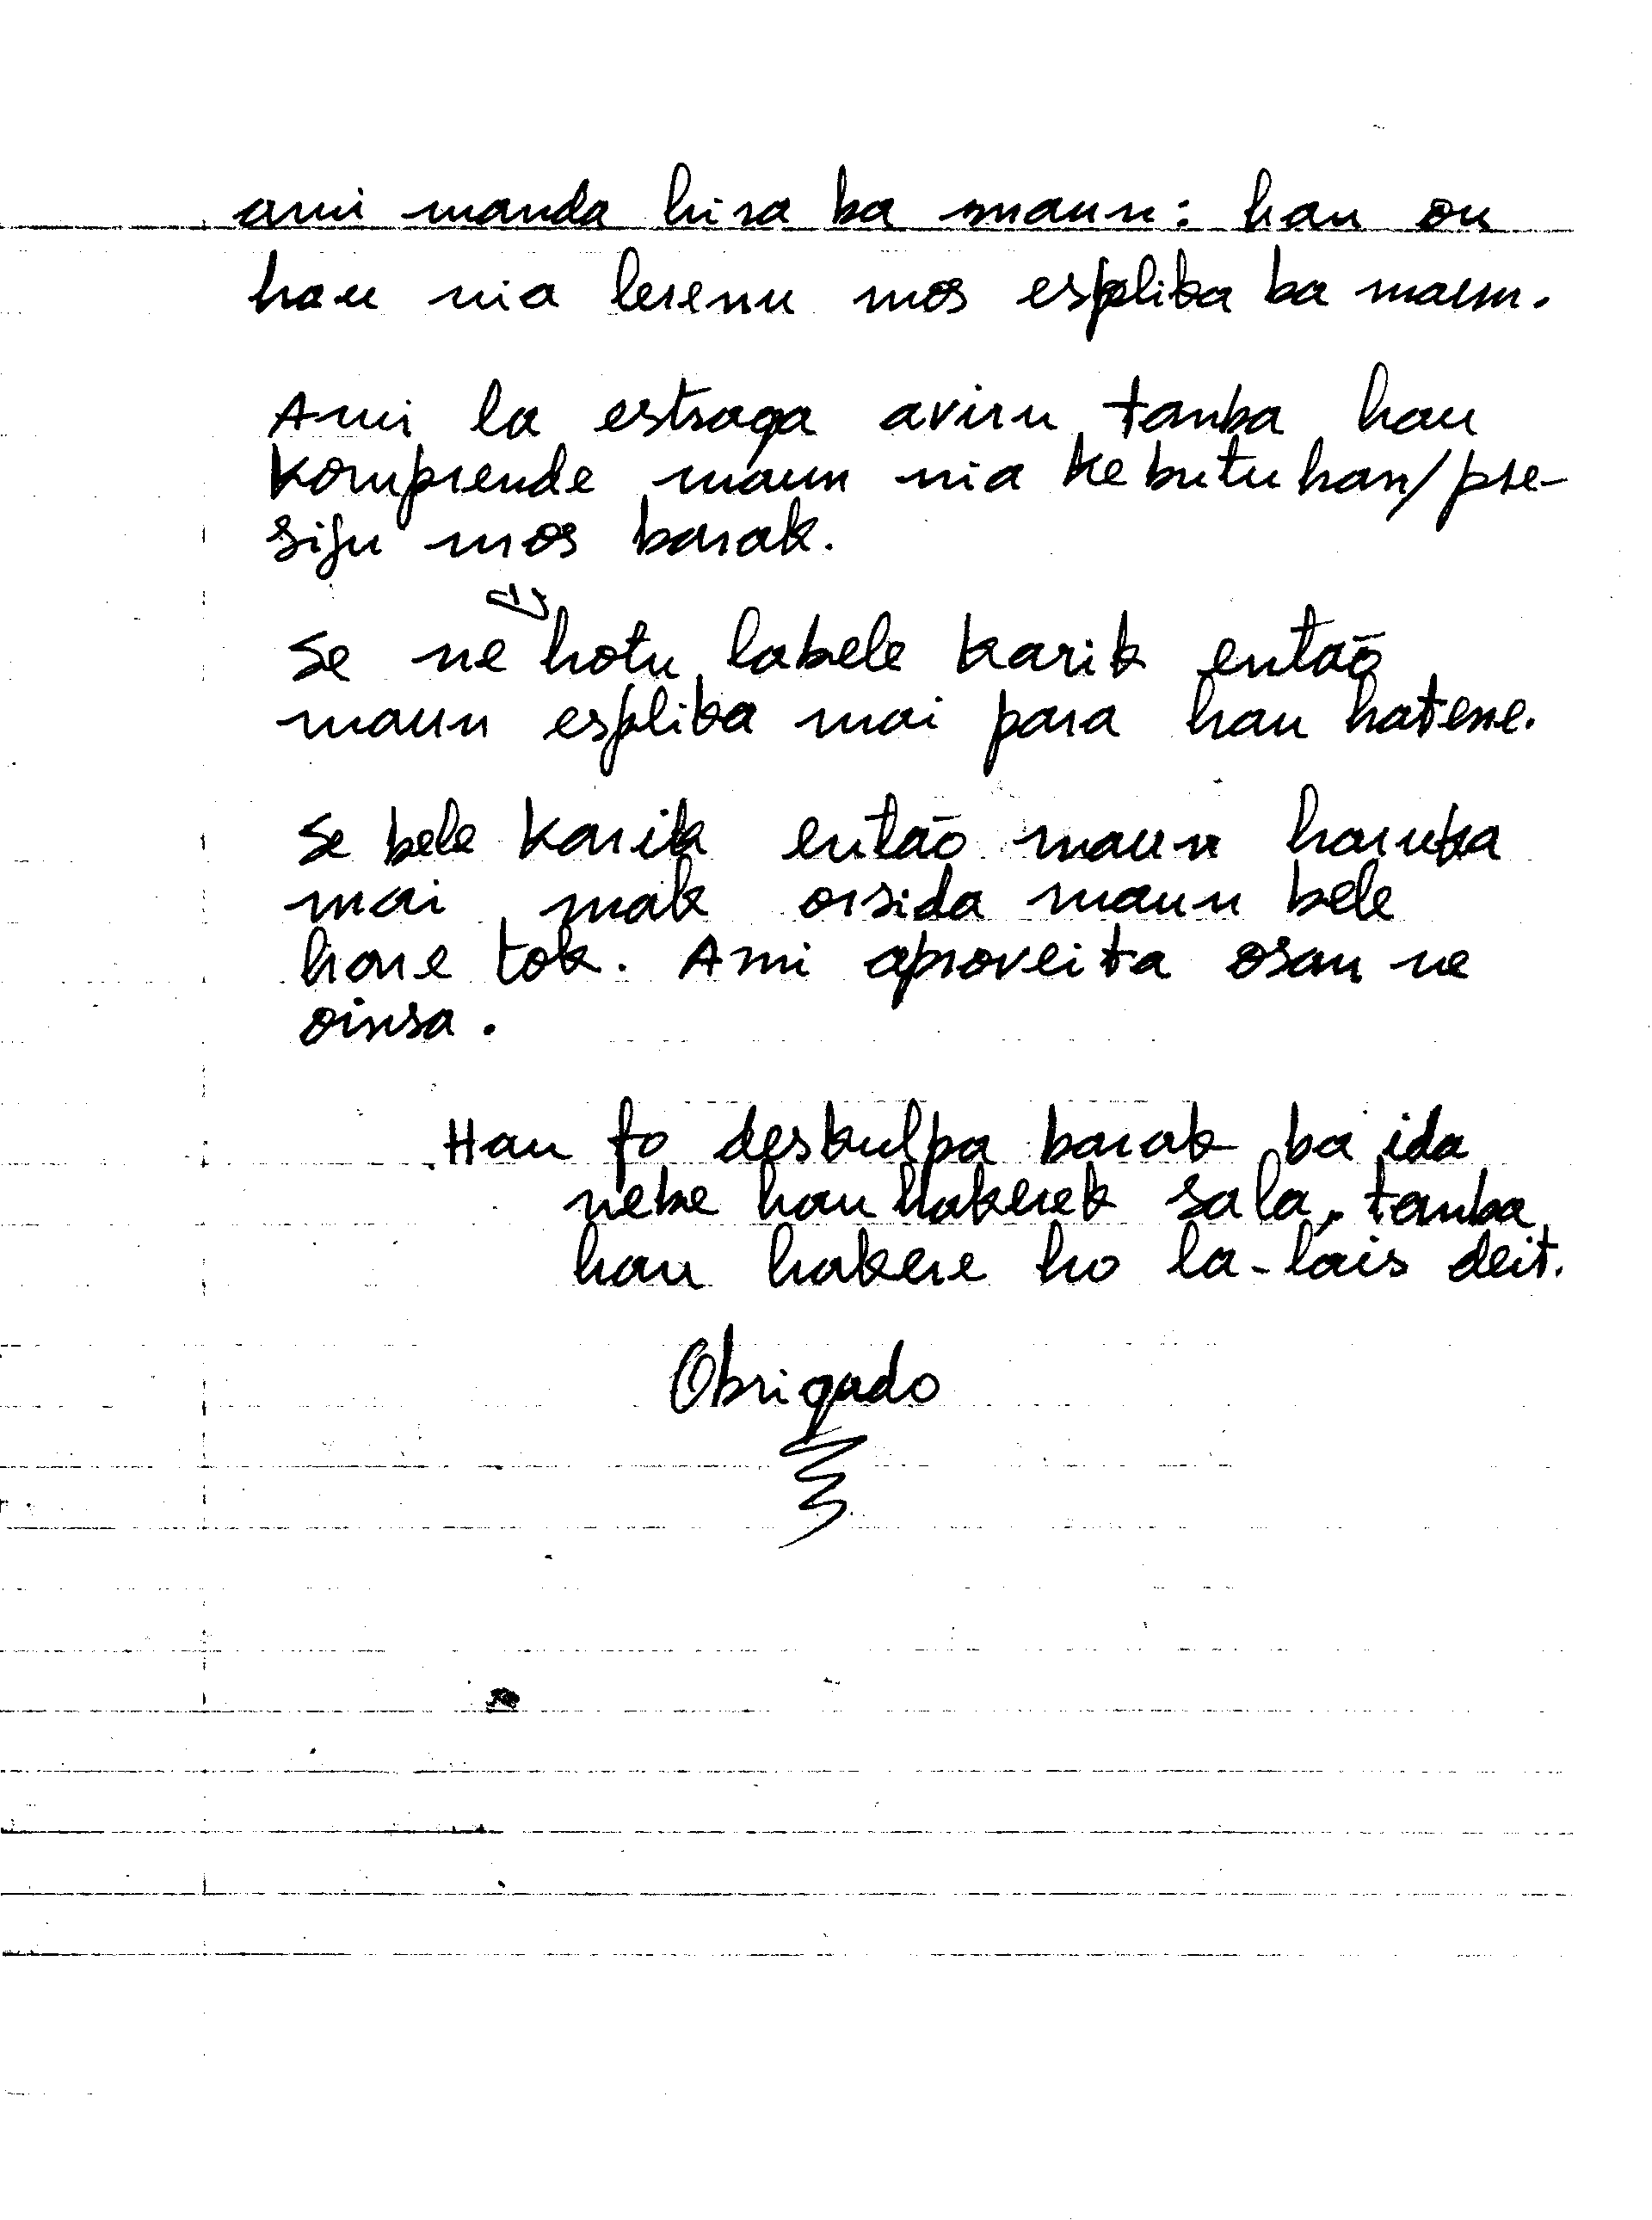 ami manda hira ba maun: hau ou
hau nia lerenu mos esplika ba maun.
Ami la estraga aviru tanba hau
komprende maun nia kebutuhan/pre-
siju mos barak.
Se ne hotu labele karik entaõ
maun esplika mai para hau hatene.
Se bele karik entaõ maun haruka
mai mak orsida maun bele
hare tok. Ami aproveita osan ne
oinsa.
Hau fo deskulpa barak ba ida
nebe hau hakerek sala, tanba
hau hakere ho la-lais deit.
Obrigado